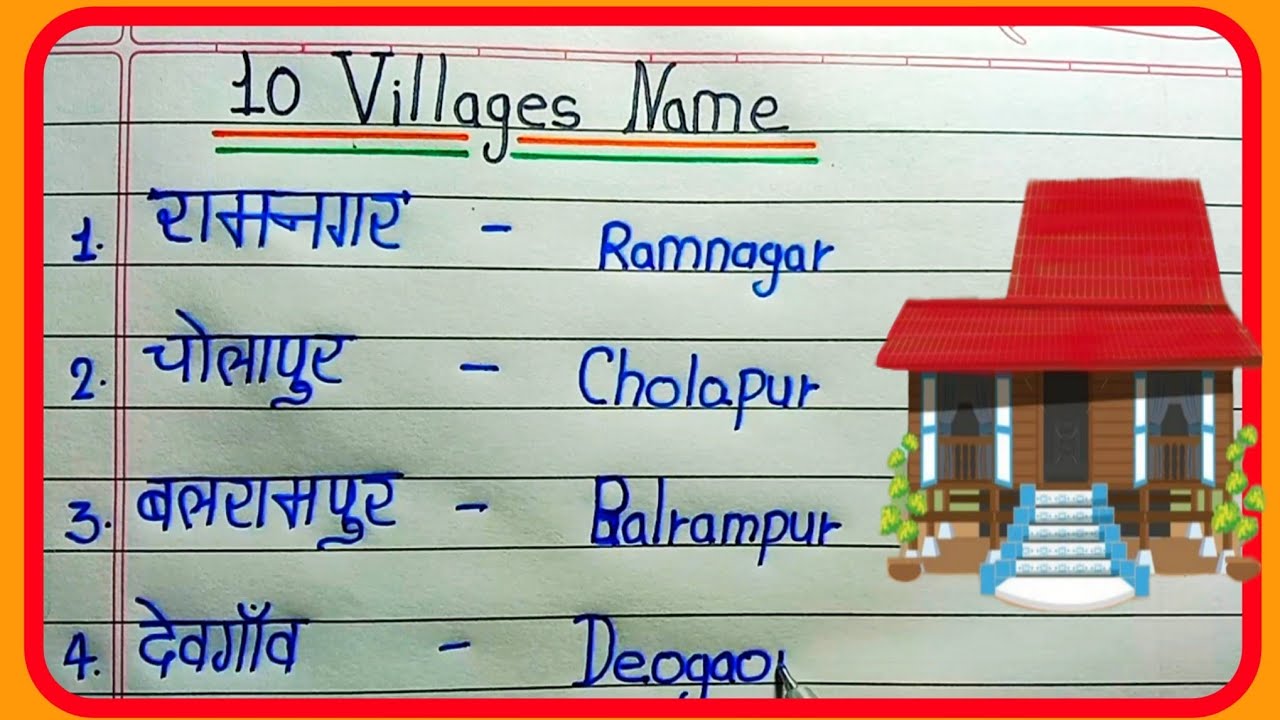 10 Villages Name
1. रामनगर - Ramnagar
2. चोलापुर - Cholapur
3. बलरामपुर - Balrampur
4. देवगाँव - Deogao